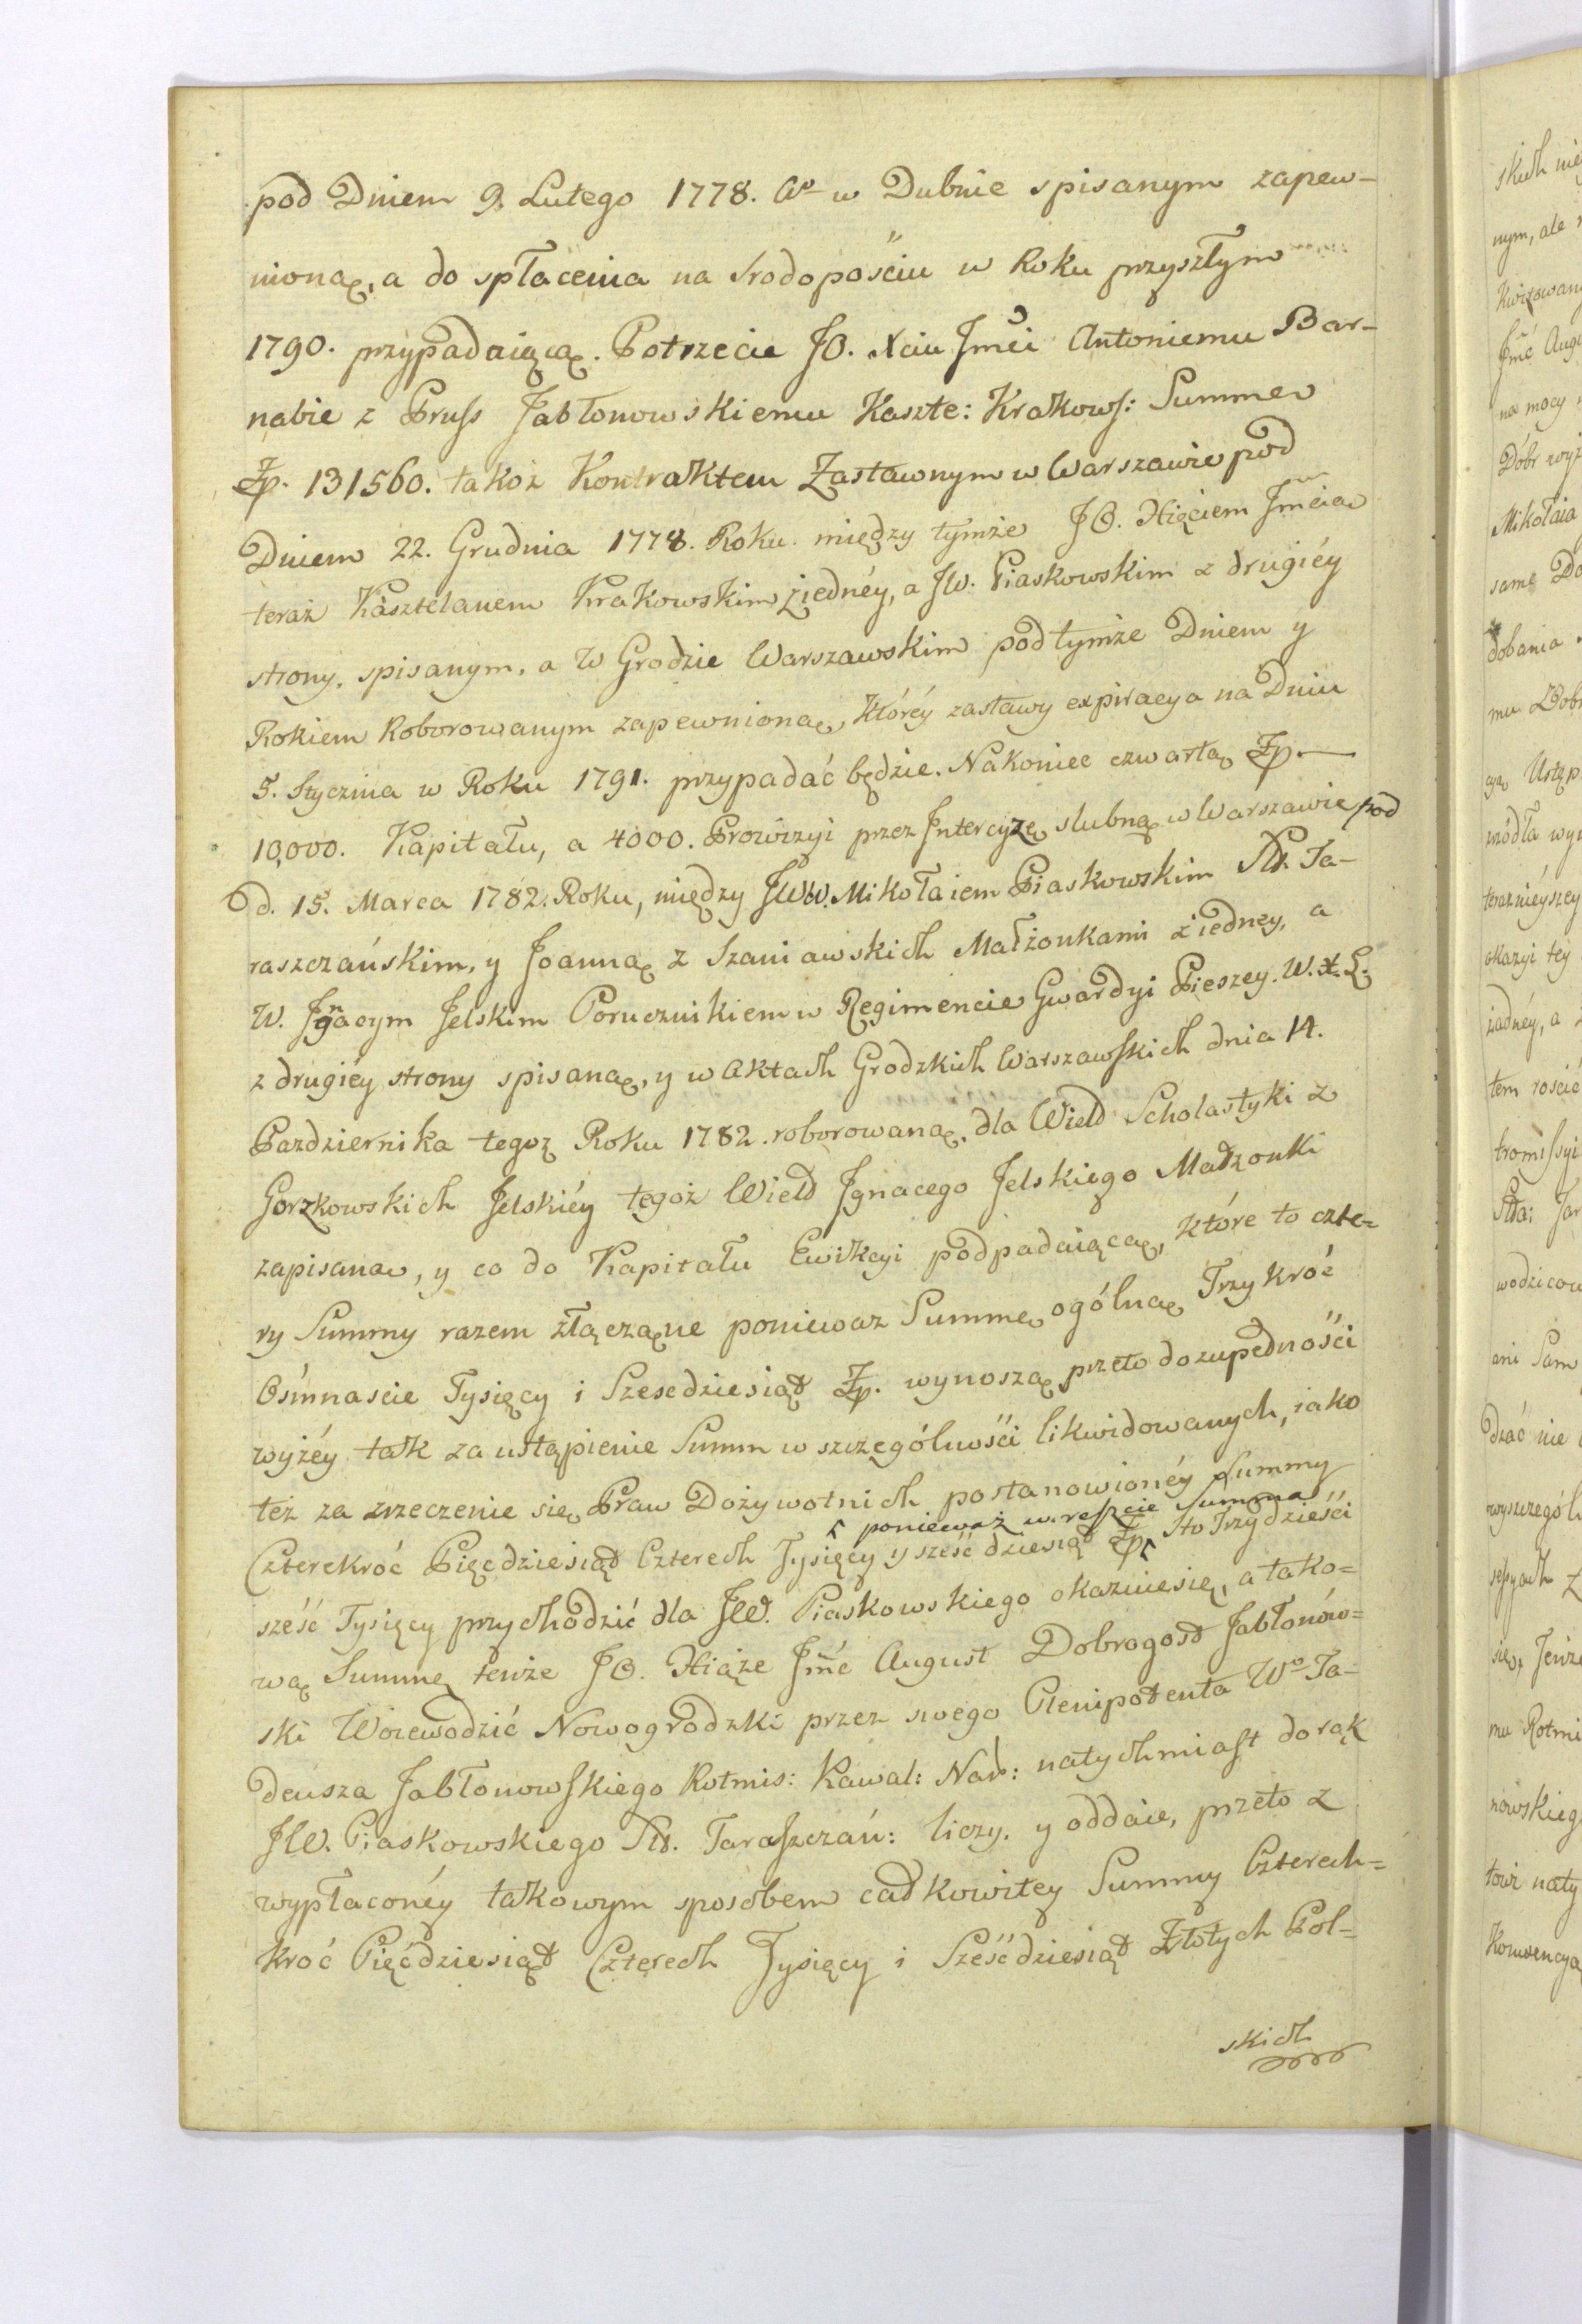 pod Dniem 9. Lutego 1778. Ao w Dubnie spisanym zapew-
nioną, a do spłacenia na Srodopościu w Roku przyszłym
1790. przypadaiącą. Potrzecie JO. Xciu Jmći Antoniemu Bar-
nabie z Pruss Jabłonowskiemu Kaszte: Krakows: Summę
Zp. 131560. takoż Kontraktem Zastawnym w Warszawie pod
Dniem 22. Grudnia 1778. Roku między tymże JO. Xięciem Jmćią
teraz Kasztelanem Krakowskim z iednéy, a JW. Piaskowskim z drugiéy
strony, spisanym, a w Grodzie Warszawskim pod tymże Dniem y
Rokiem Roborowanym zapewnioną, któréy zastawy expiracya na Dniu
5. Stycznia w Roku 1791. przypadać będzie. Nakoniec czwartą Zp.
10,000. Kapitału, a 4000. Prowizyi przez Intercyzę slubną w Warszawie pod
D. 15. Marca 1782. Roku, między JWW. Mikołaiem Piaskowskim Sta. Ta-
raszczańskim, y Joanną z Szaniawskich Małżonkami z iedney, a
W. Jgnacym Jelskim Porucznikiem w Regimencie Gwardyi Pieszey. W. X. L.
z drugiéy strony spisaną, y w Aktach Grodzkich Warszawskich dnia 14.
Pazdziernika tegoz Roku 1782. roborowaną, dla Wield Scholastyki z
Gorzkowskich Jelskiéy tegoż Wield Jgnacego Jelskiego Małzonki
zapisaną, y co do Kapitału Ewikcyi podpadaiącą, które to czte-
ry Summy razem złączone poniewaz Summę ogólną Trzykroć
Ośmnascie Tysięcy i Szescdziesiąt Zp. wynoszą, przeto do zupełności
wyżéy tak za ustąpienie Summ w szczególności likwidowanych, iako
też za zrzeczenie się Praw Dożywotnich postanowionéy Summy
ponieważ w reszcie Summa
Czterekroć Pięcdziesiąt Czterech Tysięcy y sześćdziesiąt Zp. Sto Trzydzieści
sześć Tysięcy przychodzić dla JW. Piaskowskiego okazuie się, a tako-
wą Summę tenże JO. Xiąże Jmć August Dobrogost Jabłonow-
ski Woiewodzić Nowogrodzki przez swego Plenipotenta Wo Ta-
deusza Jabłonowskiego Rotmis: Kawal: Nar: natychmiast do rąk
JW. Piaskowskiego Sta. Taraszczań: liczy, y oddaie, przeto z
wypłaconéy takowym sposobem całkowitey Summy Czterech-
kroć Pięćdziesiąt Czterech Tysięcy i Sześćdziesiąt Złotych Pol-
skich